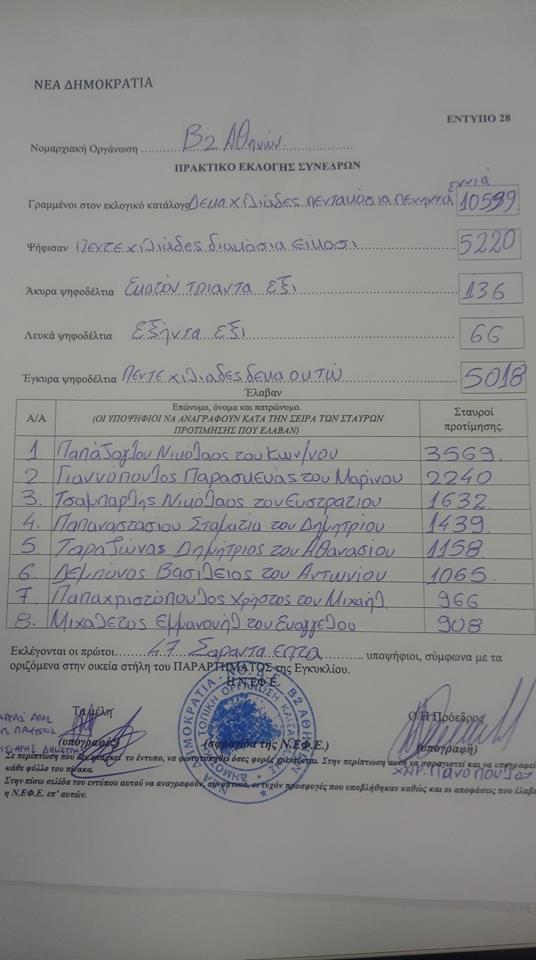 ΝΕΑ ΔΗΜΟΚΡΑΤΙΑ
ΕΝΤΥΠΟ 28
Νομαρχιακή Οργάνωση Β2 Αθηνών
ΠΡΑΚΤΙΚΟ ΕΚΛΟΓΗΣ ΣΥΝΕΔΡΩΝ
εννιά
Γραμμένοι στον εκλογικό κατάλογο Δεκα χιλιάδες πεντακόσια πενήντα 10599
Ψήφισαν Πεντε χιλιάδες διακόσια είκοσι 5220
Άκυρα ψηφοδέλτια Εκατόν τριαντα έξι 136
Λευκά ψηφοδέλτια Εξήντα έξι 66
Έγκυρα ψηφοδέλτια Πεντε χιλιαδες δεκα οκτώ 5018
Έλαβαν
Α/Α Επώνυμο, όνομα και πατρώνυμο. (ΟΙ ΥΠΟΨΗΦΙΟΙ ΝΑ ΑΝΑΓΡΑΦΟΥΝ ΚΑΤΑ ΤΗΝ ΣΕΙΡΑ ΤΩΝ ΣΤΑΥΡΩΝ ΠΡΟΤΙΜΗΣΗΣ ΠΟΥ ΕΛΑΒΑΝ) Σταυροί προτίμησης.
1 Παπάζογλου Νικόλαος του Κων/νου 3569
2 Γιαννόπουλος Παρασκευάς του Μαρίνου 2240
3. Τσαμπαρλής Νικόλαος του Ευστρατίου 1632
4. Παπαναστασίου Σταματία του Δημητρίου 1439
5 Ταρατζώνας Δημήτριος του Αθανασίου 1158
6. Λεμπόνος Βασίλειος του Αντωνίου 1065
7 Παπαχριστόπουλος Χρήστος του Μιχαήλ 966
8. Μιχαλέτος Εμμανουήλ του Ευαγγέλου 908
Εκλέγονται οι πρώτοι 47 Σαραντα επτα υποψήφιοι, σύμφωνα με τα
οριζόμενα στην οικεία στήλη του ΠΑΡΑΡΤΗΜΑΤΟΣ της Εγκυκλίου.
Η Ν.ΕΦ.Ε.
Τα μέλη
Ο/Η Πρόεδρος
(υπογραφές) (σφραγίδα της Ν.ΕΦ.Ε.) (υπογραφή)
ΧΑΡ. Πανόπουλος
Σε περίπτωση που δεν επαρκεί το έντυπο, να φωτοτυπηθεί όσες φορές χρειάζεται. Στην περίπτωση αυτή να σφραγιστεί και να υπογραφεί
κάθε φύλλο του πίνακα.
Στην πίσω σελίδα του εντύπου αυτού να αναγραφούν, συνοπτικά, οι τυχόν προσφυγές που υποβλήθηκαν καθώς και οι αποφάσεις που έλαβε
η Ν.ΕΦ.Ε. επ' αυτών.